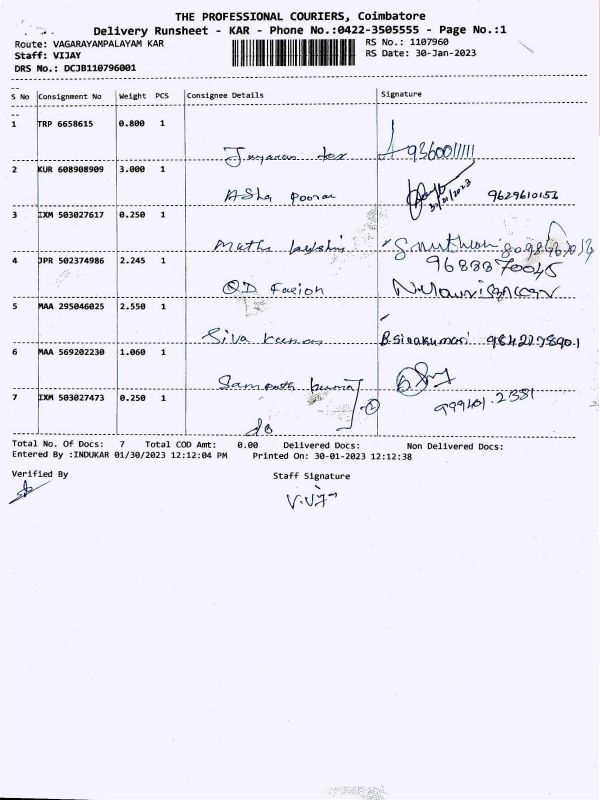 THE PROFESSIONAL COURIERS, Coimbatore
Delivery Runsheet - KAR - Phone No.:0422-3505555 - Page No.:1
Route: VAGARAYAMPALAYAM KAR RS No.: 1107960
Staff: VIJAY RS Date: 30-Jan-2023
DRS No.: DCJB110796001
S No Consignment No Weight PCS Consignee Details Signature
1 TRP 6658615 0.800 1
tex 9360011111
2 KUR 608908909 3.000 1
Asha Pooran 30/01/2023 9629610156
3 IXM 503027617 0.250 1
9683370045
4 JPR 502374986 2.245 1
QD Fasion
5 MAA 295046025 2.550 1
Siva kumar B.Sivakumari 9842278901
6 MAA 569202230 1.060 1
Sampath kumar
7 IXM 503027473 0.250 1
do 2
Total No. Of Docs: 7 Total COD Amt: 0.00 Delivered Docs: Non Delivered Docs:
Entered By :INDUKAR 01/30/2023 12:12:04 PM Printed On: 30-01-2023 12:12:38
Verified By Staff Signature